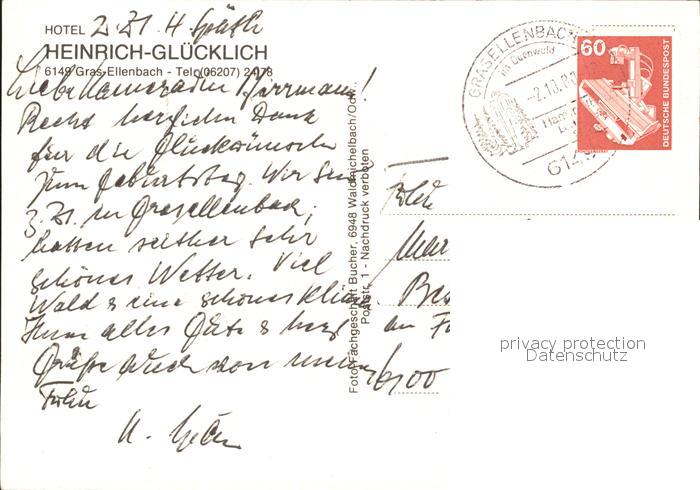 HOTEL z. Zt. H. Späth
HEINRICH-GLÜCKLICH
6149 Gras-Ellenbach - Tel. (06207) 2178
Liebe Kameradin Herrmann!
Recht herzlichen Dank
für die Glückwünsche
zum Geburtstag. Wir sind
z. Zt. in Grasellenbach,
hatten seither sehr
schönes Wetter. Viel
Wald & eine schönes
Ihnen alles Gute & herzl
Grüße auch von meiner
Frau
H.
Foto-Fachgeschäft Bucher, 6948 Waldmichelbach/Odw.,
Poststr. 1 - Nachdruck verboten
GRASELLENBACH
im Odenwald
-2.10.8
614
60
DEUTSCHE BUNDESPOST
Frau
Mar
an F
6100
privacy protection
Datenschutz